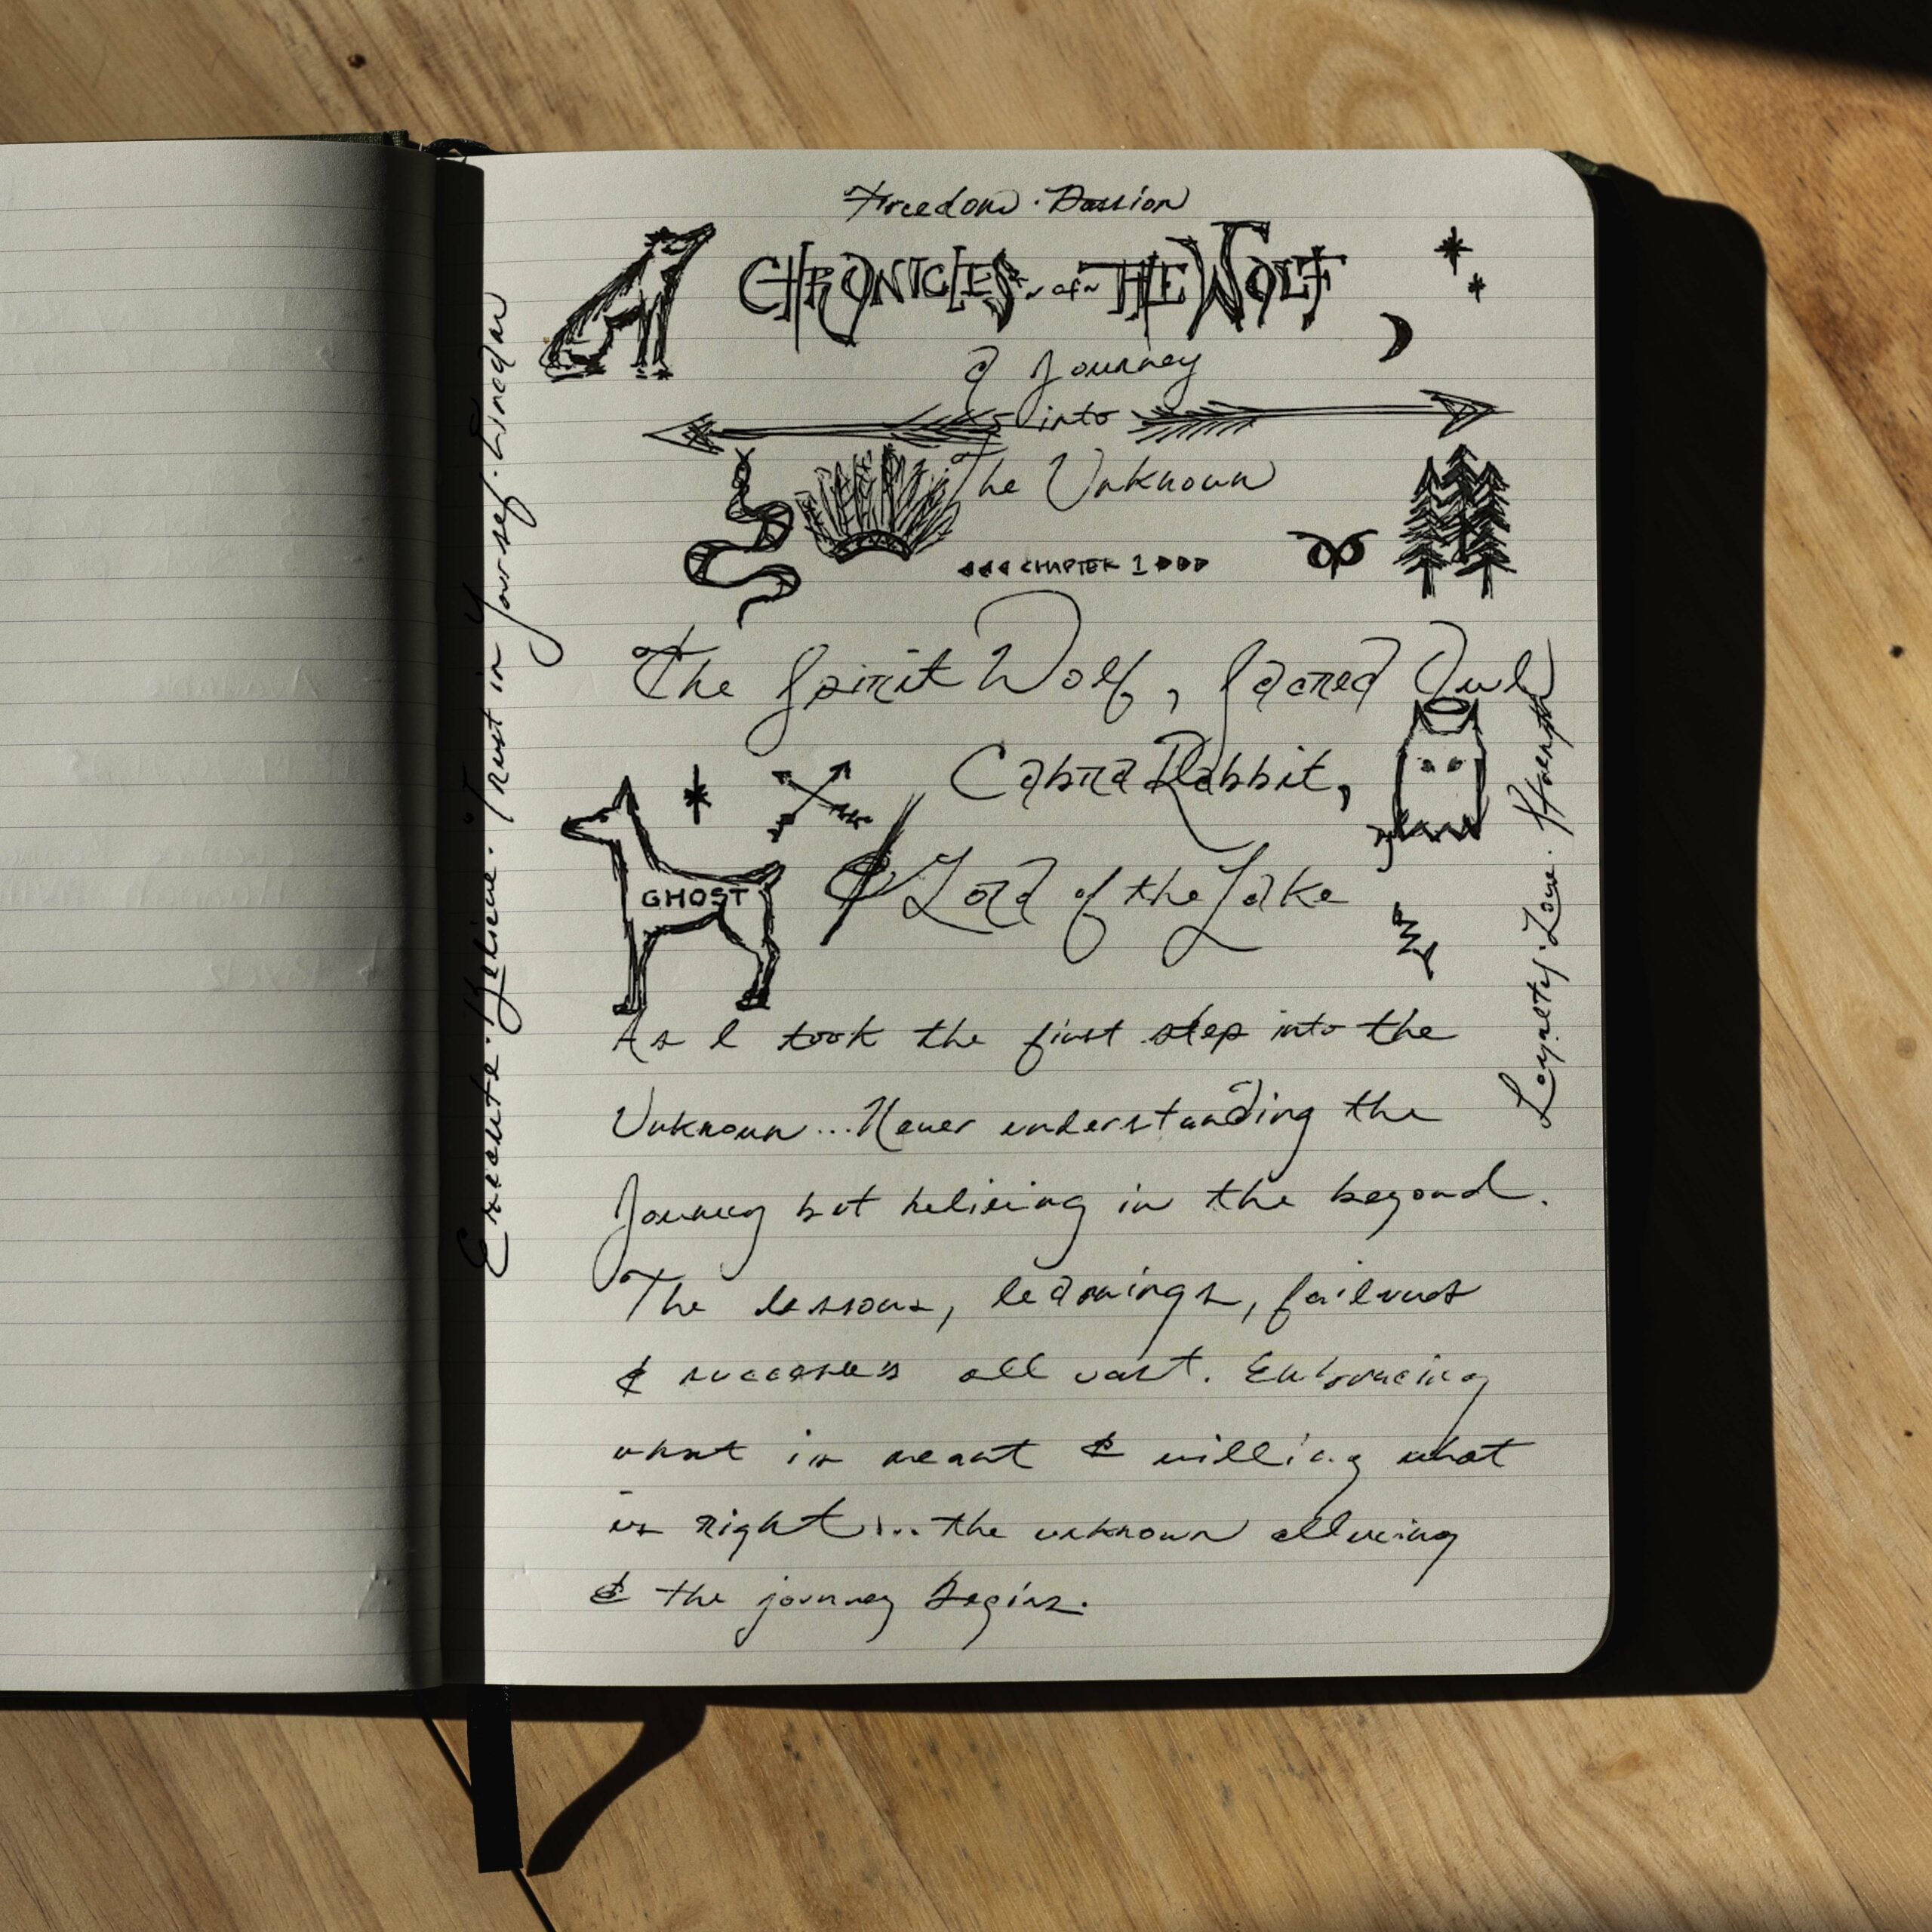 Freedom · Passion
CHRONICLES ~of~ THE WOLF
A Journey
into
The Unknown
CHAPTER 1
The Spirit Wolf, Sacred Owl
Cabra Rabbit,
& Lord of the Lake
GHOST
As I took the first step into the
Unknown...Never understanding the
Journey but beliving in the beyond.
The lessons, learnings, failures
& successes all vast. Embracing
what is meant & willing what
is right... the unknown alluring
& the journey begins.
Execute. Believe. Trust in Yourself.
Loyalty. Love. Strength